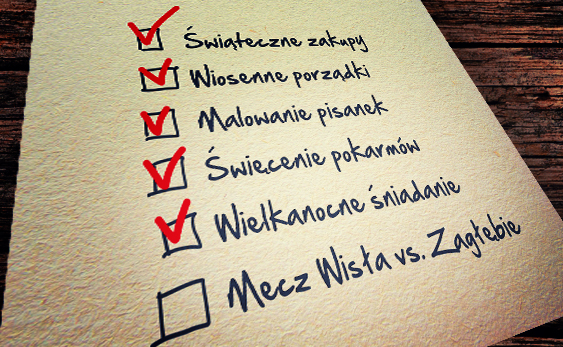 Świąteczne zakupy
Wiosenne porządki
Malowanie pisanek
Święcenie pokarmów
Wielkanocne śniadanie
Mecz Wisła vs. Zagłębie